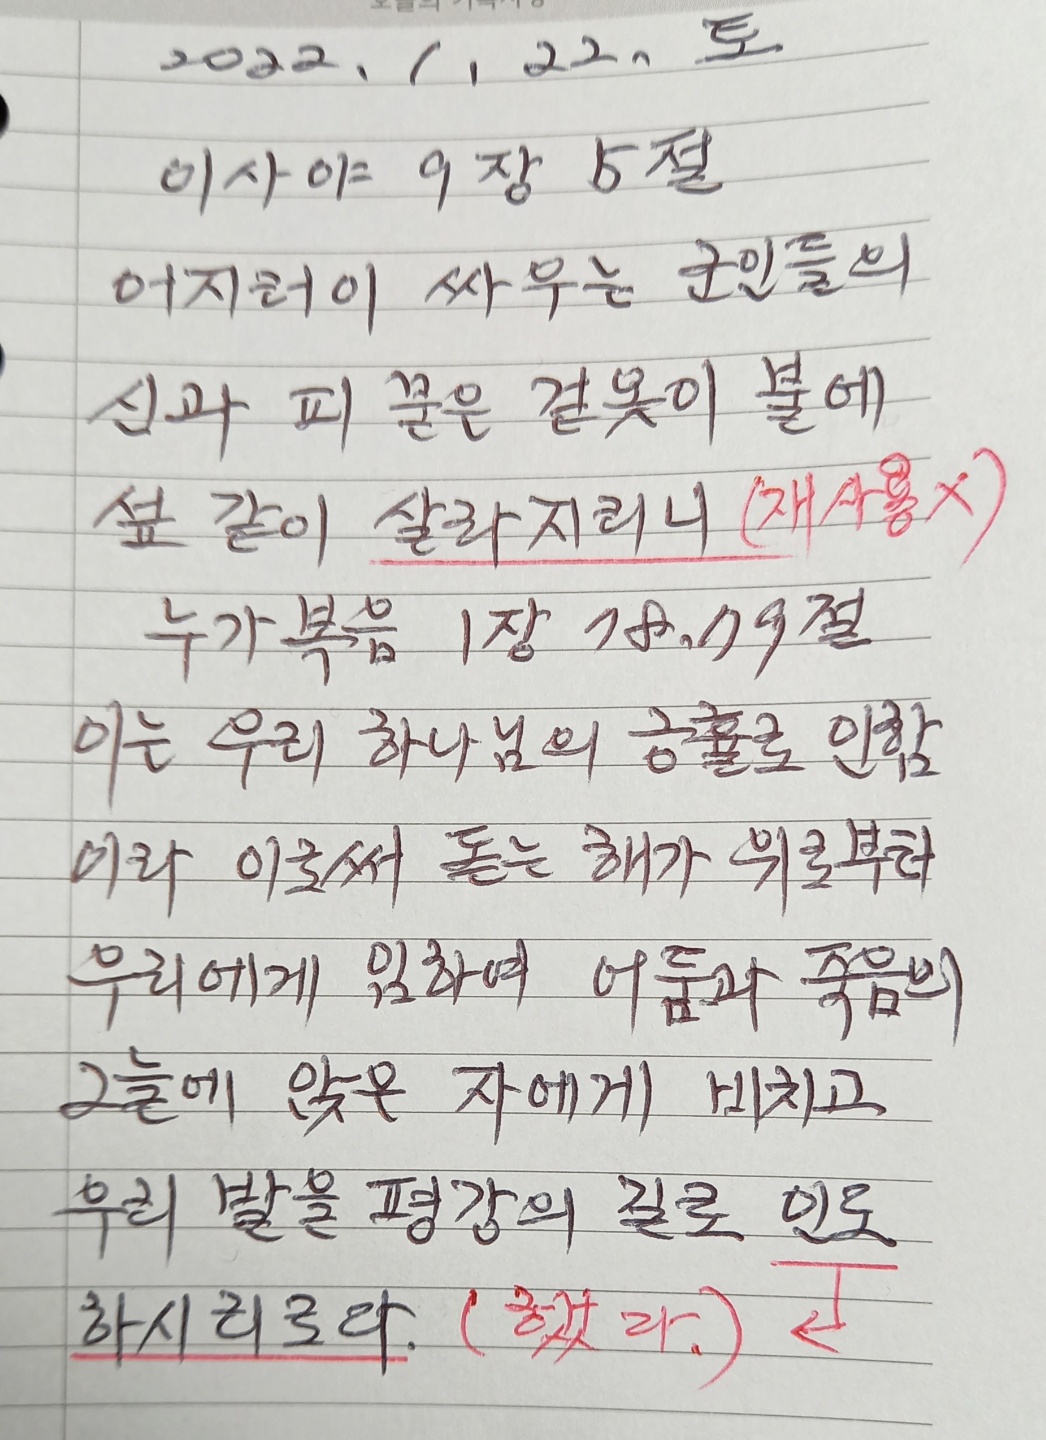 2022. 1. 22. 토
이사야 9장 5절
어지러이 싸우는 군인들의
신과 피 묻은 겉옷이 불에
섶 같이 살라지리니 (재사용X)
누가복음 1장 78.79절
이는 우리 하나님의 긍휼로 인함
이라 이로써 돋는 해가 위로부터
우리에게 임하여 어둠과 죽음의
그늘에 앉은 자에게 비치고
우리 발을 평강의 길로 인도
하시리로다. (했다.)